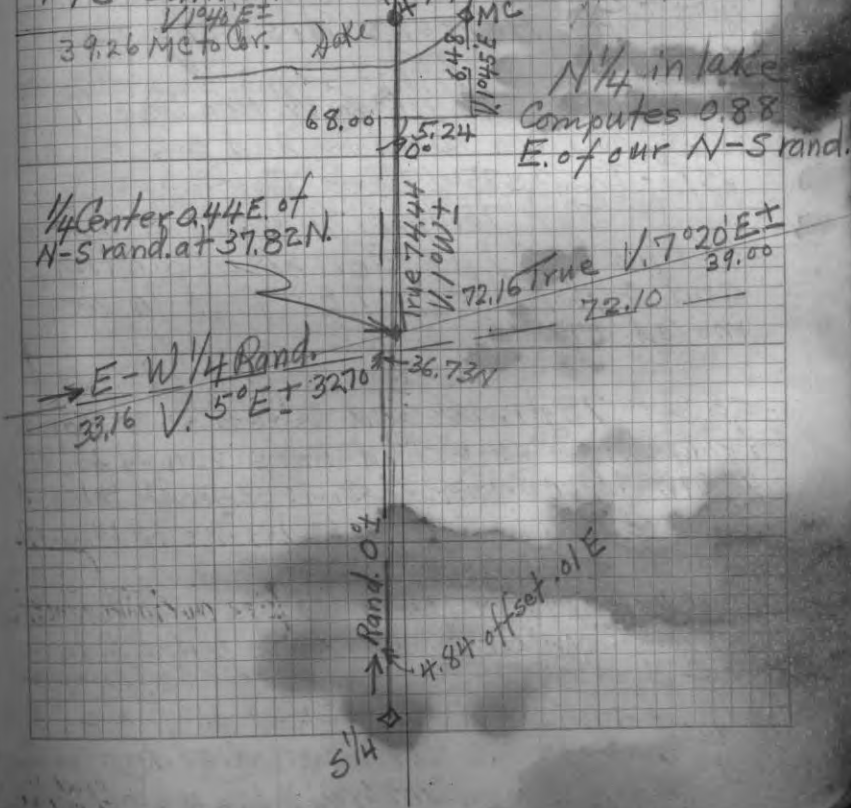 V 1°40' E ±
39.26 MC to Cor.
MC
3.540
8.49
N 1/4 in lake
Computes 0.88
E. of our N-S rand.
68.00
5.24
90°
1/4 Center 0.44 E. of
N-S rand. at 37.82 N.
True
72.16 True V. 7°20' E ±
39.00
72.10
E-W 1/4 Rand.
33.16 V. 5° E ± 32.70
36.73 N
Rand. 0° ±
4.84 offset .01 E
S 1/4